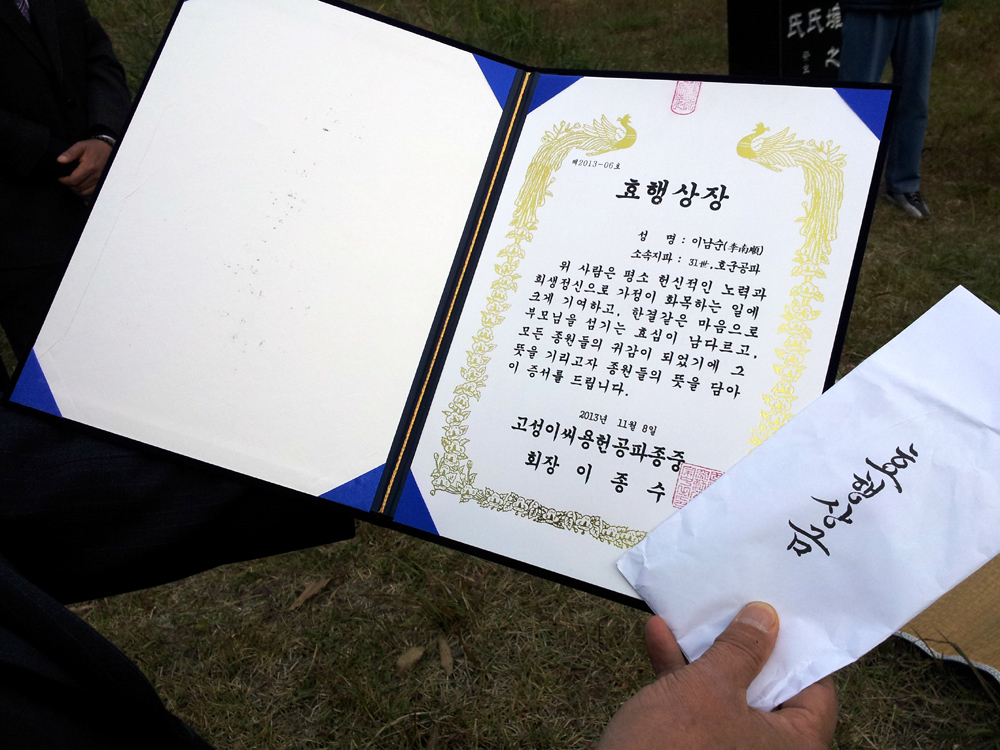 제2013-06호
효행상장
성 명 : 이남순(李南順)
소속지파 : 31世, 호군공파
위 사람은 평소 헌신적인 노력과
희생정신으로 가정이 화목하는 일에
크게 기여하고, 한결같은 마음으로
부모님을 섬기는 효심이 남다르고,
모든 종원들의 귀감이 되었기에 그
뜻을 기리고자 종원들의 뜻을 담아
이 증서를 드립니다.
2013년 11월 8일
고성이씨용헌공파종중
회장 이 종 수
효행상금
氏氏壇
之